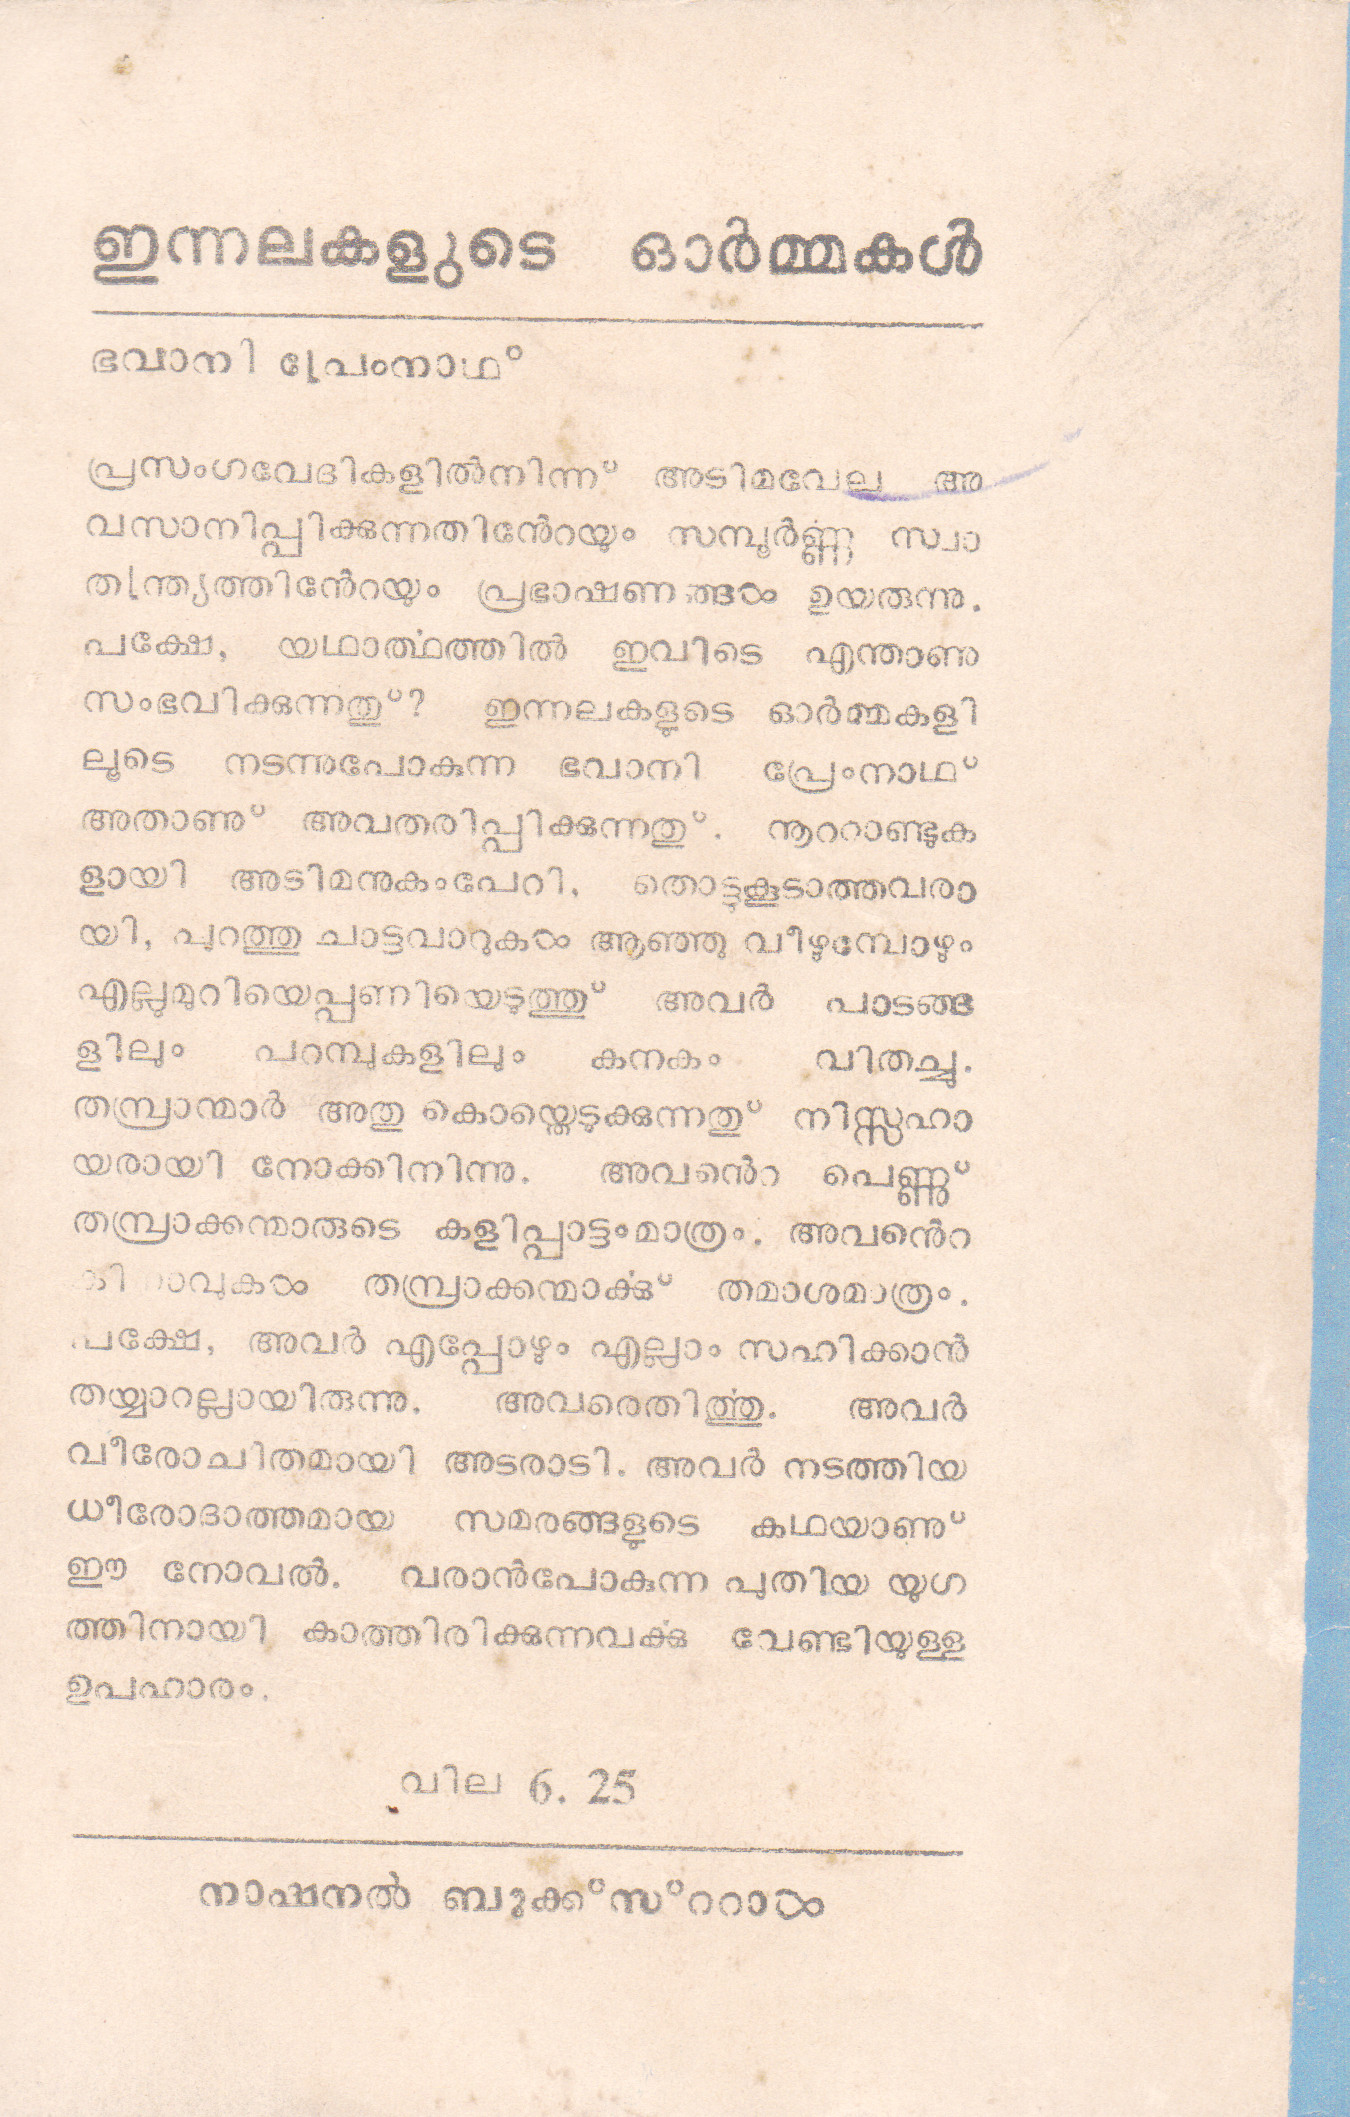 ഇന്നലകളുടെ ഓർമ്മകൾ
ഭവാനി പ്രേംനാഥ്
പ്രസംഗവേദികളിൽനിന്ന് അടിമവേല അ
വസാനിപ്പിക്കുന്നതിൻേറയും സമ്പൂർണ്ണ സ്വാ
തന്ത്ര്യത്തിൻേറയും പ്രഭാഷണങ്ങൾ ഉയരുന്നു.
പക്ഷേ, യഥാൎത്ഥത്തിൽ ഇവിടെ എന്താണു
സംഭവിക്കുന്നതു്? ഇന്നലകളുടെ ഓർമ്മകളി
ലൂടെ നടന്നുപോകുന്ന ഭവാനി പ്രേംനാഥ്
അതാണു് അവതരിപ്പിക്കുന്നതു്. നൂററാണ്ടുക
ളായി അടിമനുകംപേറി, തൊട്ടുകൂടാത്തവരാ
യി, പുറത്തു ചാട്ടവാറുകൾ ആഞ്ഞു വീഴുമ്പോഴും
എല്ലുമുറിയെപ്പണിയെടുത്തു് അവർ പാടങ്ങ
ളിലും പറമ്പുകളിലും കനകം വിതച്ചു.
തമ്പ്രാന്മാർ അതു കൊയ്തെടുക്കുന്നതു് നിസ്സഹാ
യരായി നോക്കിനിന്നു. അവൻെറ പെണ്ണു്
തമ്പ്രാക്കന്മാരുടെ കളിപ്പാട്ടംമാത്രം. അവൻെറ
കിനാവുകൾ തമ്പ്രാക്കന്മാൎക്കു് തമാശമാത്രം.
പക്ഷേ, അവർ എപ്പോഴും എല്ലാം സഹിക്കാൻ
തയ്യാറല്ലായിരുന്നു. അവരെതിൎത്തു. അവർ
വീരോചിതമായി അടരാടി. അവർ നടത്തിയ
ധീരോദാത്തമായ സമരങ്ങളുടെ കഥയാണു്
ഈ നോവൽ. വരാൻപോകുന്ന പുതിയ യുഗ
ത്തിനായി കാത്തിരിക്കുന്നവൎക്കു വേണ്ടിയുള്ള
ഉപഹാരം.
വില 6. 25
നാഷനൽ ബുക്ക്സ്ററാൾ